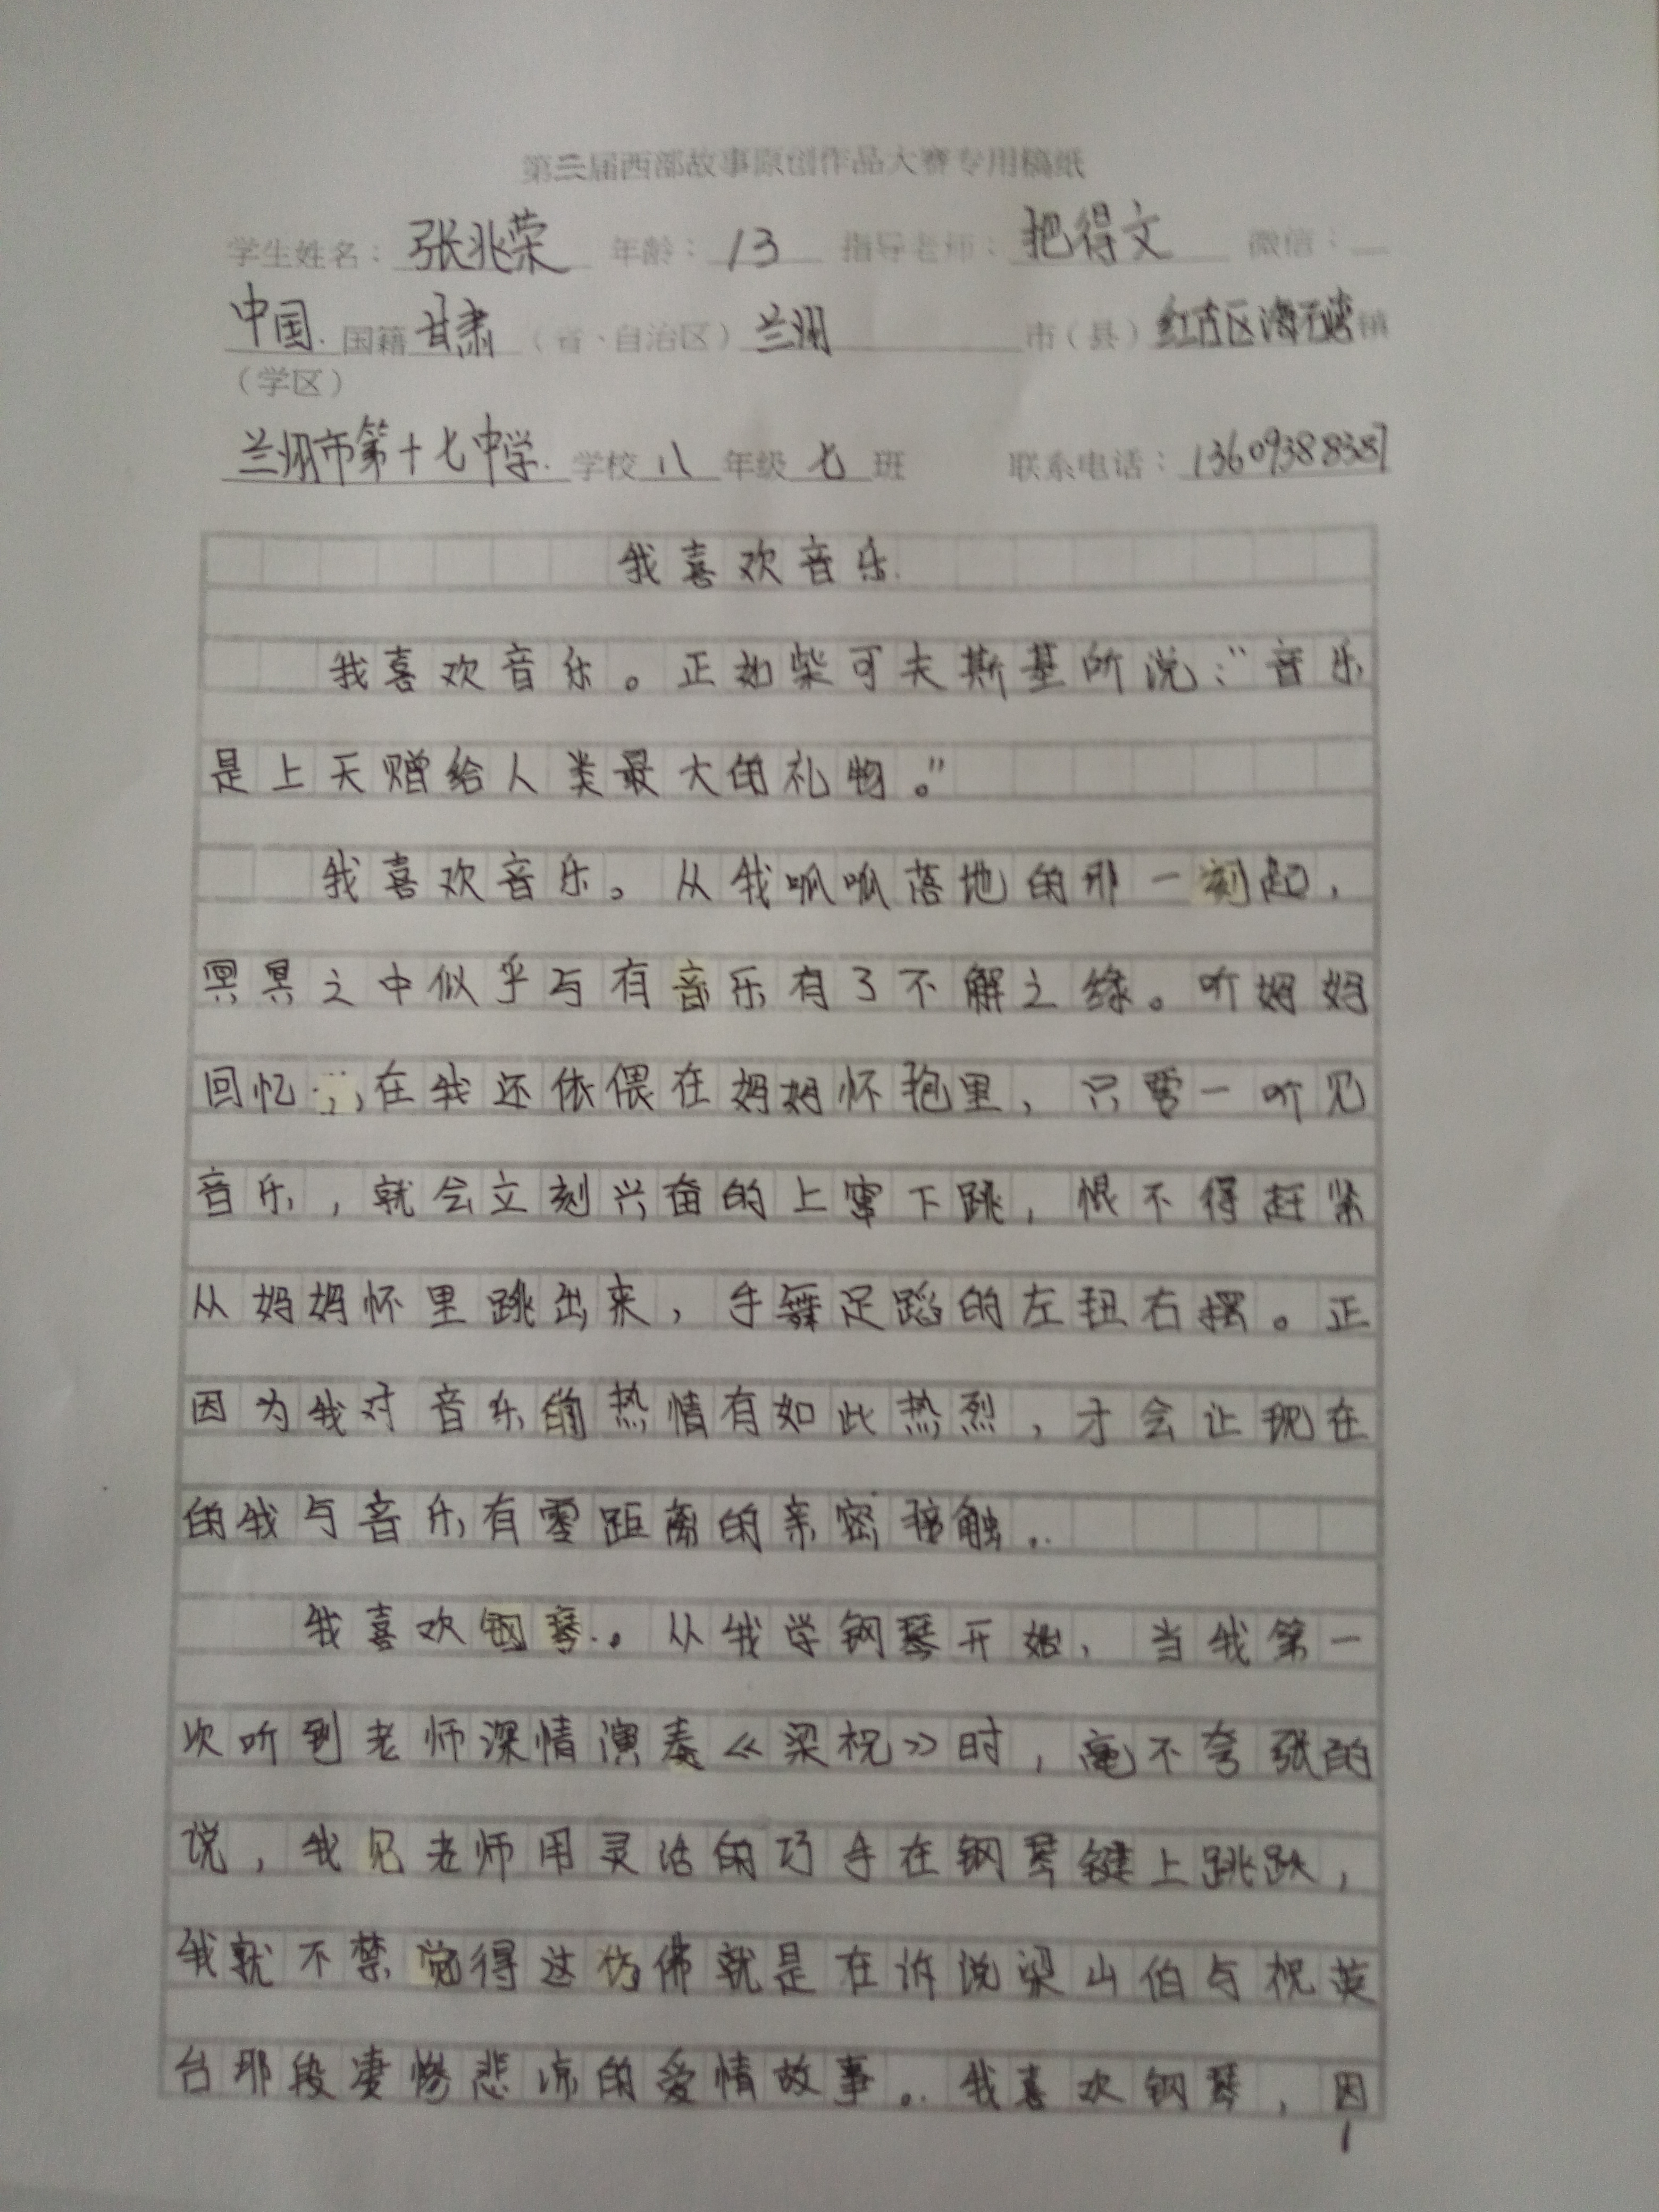 第三届西部故事原创作品大赛专用稿纸
学生姓名：张兆荣 年龄：13 指导老师：把得文 微信：
中国 国籍 甘肃（省、自治区）兰州 市（县）红古区海石湾镇
（学区）
兰州市第十七中学 学校 八 年级 七 班 联系电话：13609388387
我喜欢音乐
我喜欢音乐。正如柴可夫斯基所说：“音乐
是上天赠给人类最大的礼物。”
我喜欢音乐。从我呱呱落地的那一刻起，
冥冥之中似乎与有音乐有了不解之缘。听妈妈
回忆，在我还依偎在妈妈怀抱里，只要一听见
音乐，就会立刻兴奋的上窜下跳，恨不得赶紧
从妈妈怀里跳出来，手舞足蹈的左扭右摆。正
因为我对音乐的热情有如此热烈，才会让现在
的我与音乐有零距离的亲密接触。
我喜欢钢琴。从我学钢琴开始，当我第一
次听到老师深情演奏《梁祝》时，毫不夸张的
说，我见老师用灵活的巧手在钢琴键上跳跃，
我就不禁觉得这仿佛就是在诉说梁山伯与祝英
台那段凄惨悲凉的爱情故事。我喜欢钢琴，因
1